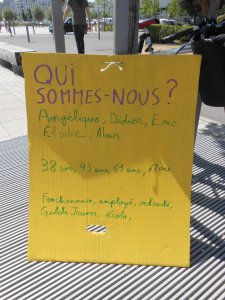 QUI
SOMMES-NOUS?
Angélique, Didier, Eric
Élodie, Alain
38 ans, 43 ans, 61 ans, 68 ans
Fonctionnaire, employé, retraité,
Gilets Jaunes, écolo,